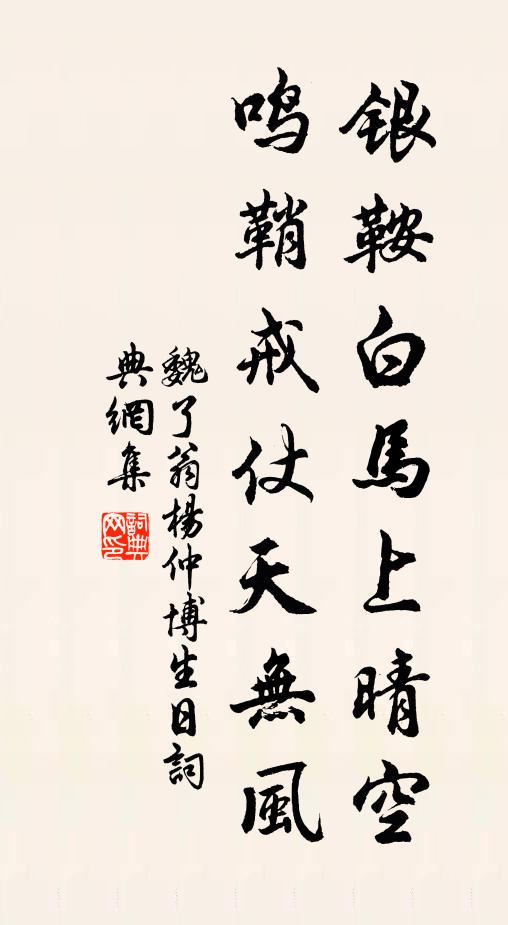 銀鞍白馬上晴空
鳴鞘戒仗天無風
魏了翁楊仲博生日詞
典網集
詞典網印